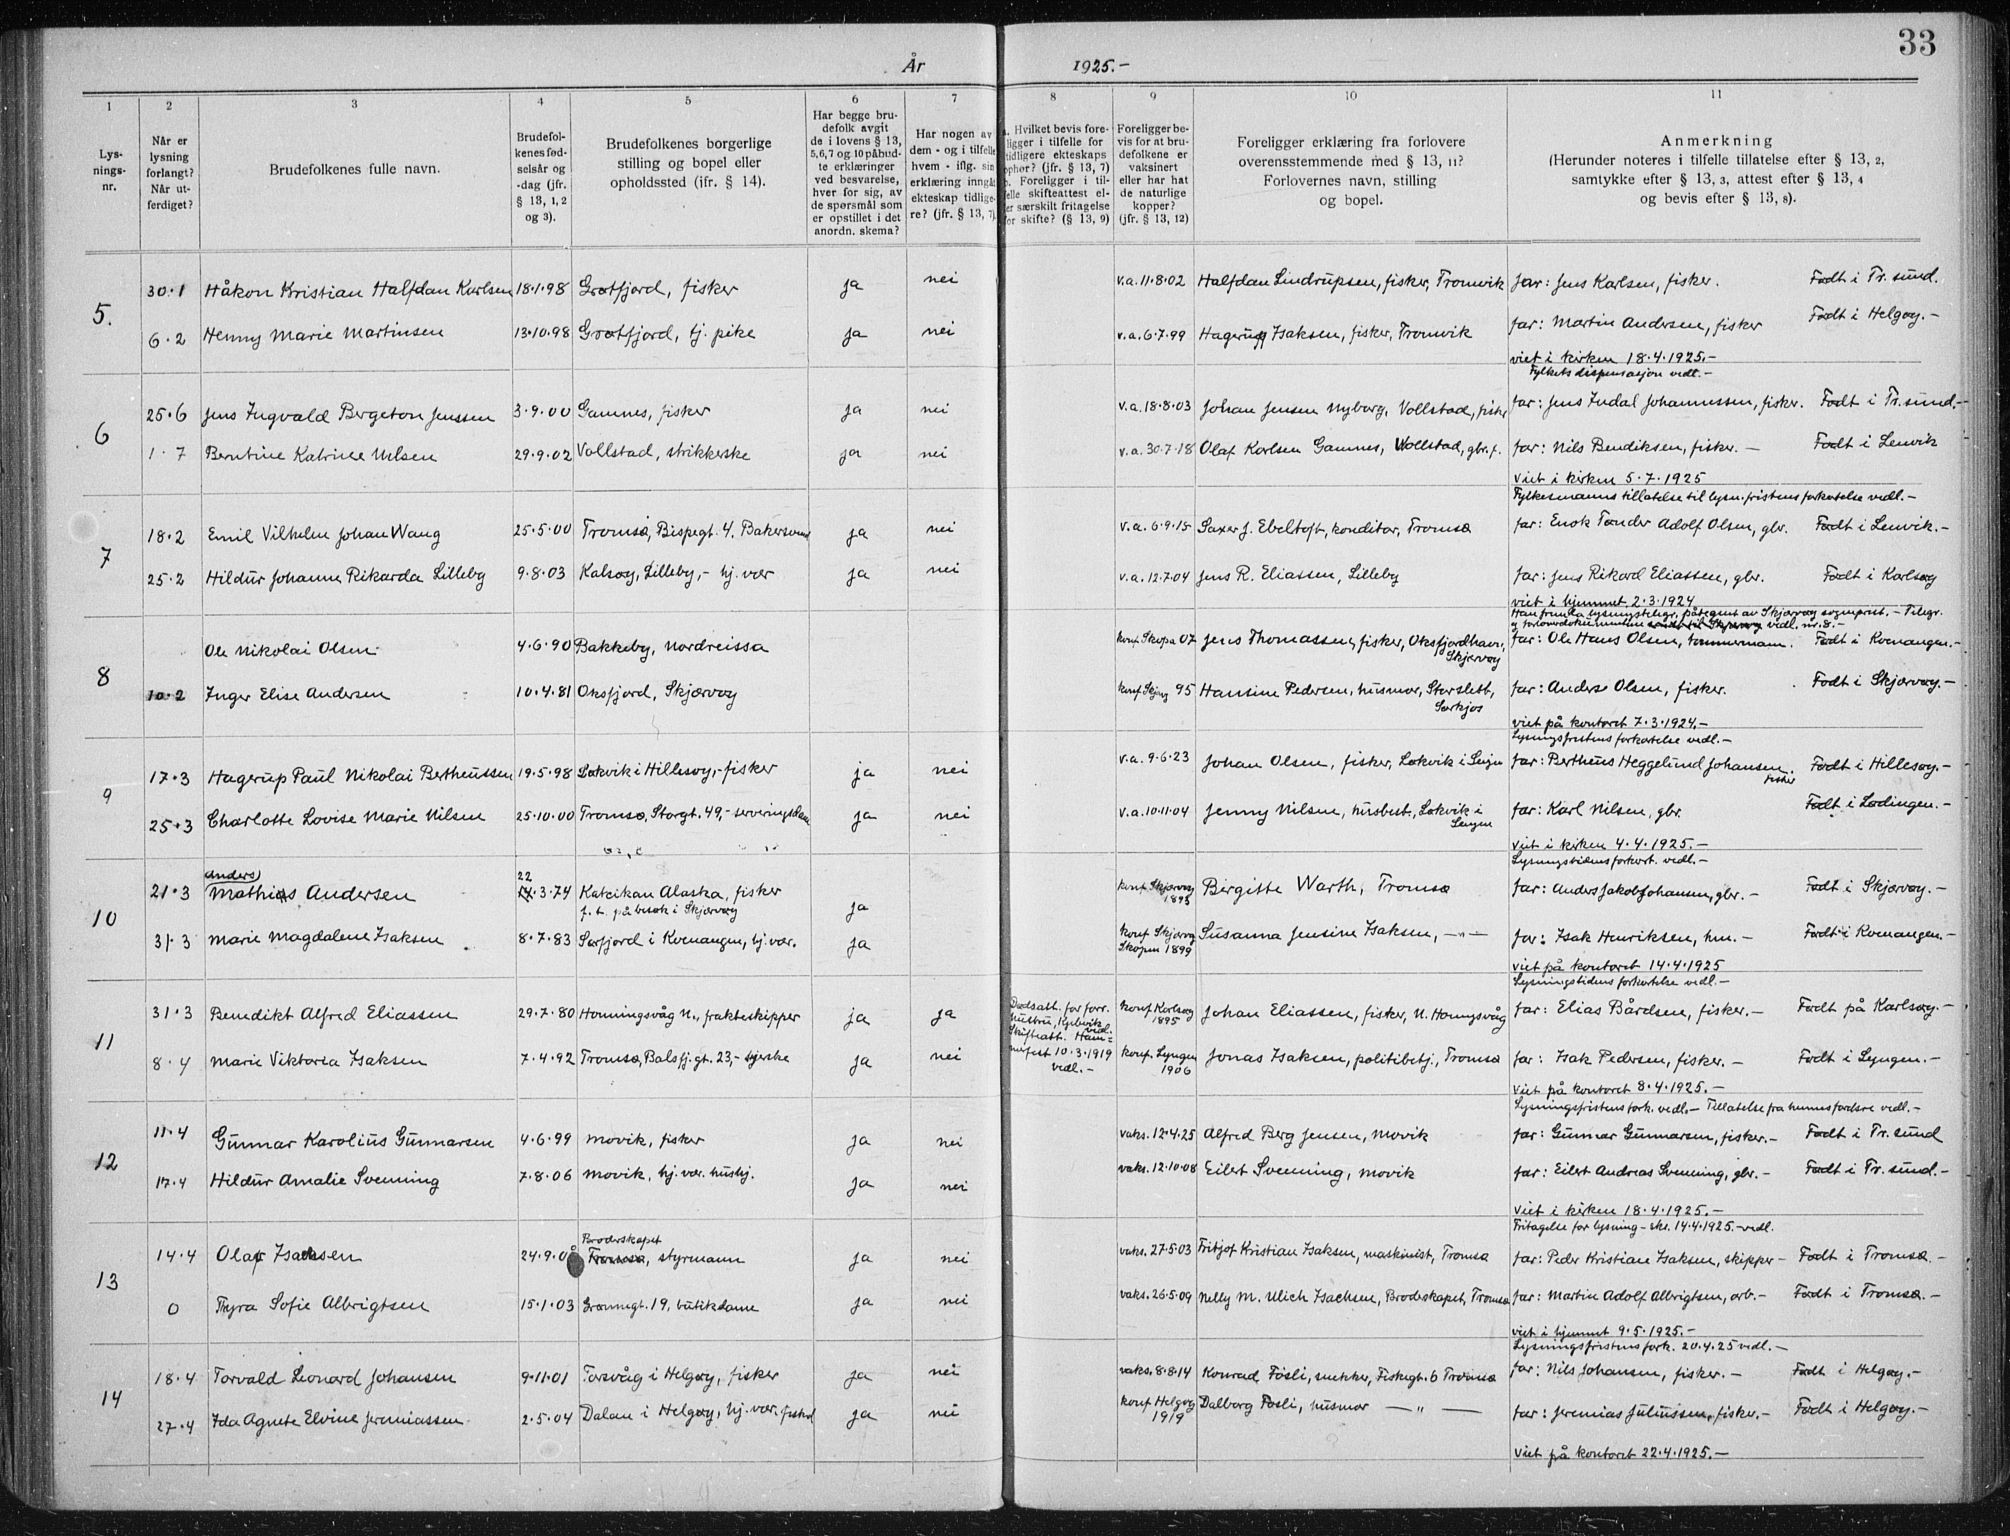 33
År 1925.-
1 2 3 4 5 6 7 8 9 10 11
Lys-
nings-
nr.
Når er
lysning
forlangt?
Når ut-
ferdiget?
Brudefolkenes fulle navn.
Brudefol-
kenes fød-
selsår og
-dag (jfr.
§ 13, 1, 2
og 3).
Brudefolkenes borgerlige
stilling og bopel eller
opholdssted (jfr. § 14).
Har begge bru-
defolk avgit
de i lovens § 13,
5, 6, 7 og 10 påbud-
te erklæringer
ved besvarelse,
hver for sig, av
de spørsmål som
er opstillet i det
anordn. skema?
Har nogen av
dem - og i tilfelle
hvem - iflg. sin
erklæring inngåt
ekteskap tidlige-
re? (jfr. § 13, 7).
a. Hvilket bevis fore-
ligger i tilfelle for
tidligere ekteskaps
ophør? (jfr. § 13, 7)
b. Foreligger i til-
felle skifteattest el-
ler særskilt fritagelse
for skifte? (§ 13, 9)
Foreligger be-
vis for at bru-
defolkene er
vaksinert
eller har hat
de naturlige
kopper?
(jfr. § 13, 12)
Foreligger erklæring fra forlovere
overensstemmende med § 13, 11?
Forlovernes navn, stilling
og bopel.
Anmerkning
(Herunder noteres i tilfelle tillatelse efter § 13, 2,
samtykke efter § 13, 3, attest efter § 13, 4
og bevis efter § 13, 8).
5. 30.1 Håkon Kristian Halfdan Karlsen 18.1.98 Grøtfjord, fisker ja nei v.a. 11.8.02 Halfdan Lindrupsen, fisker, Tromvik far: Jens Karlsen, fisker. Født i Tr. sund.
6.2 Henny Marie Martinsen 13.10.98 Grøtfjord, tj. pike ja nei v.a. 6.7.99 Hagerup Isaksen, fisker, Tromvik far: Martin Andersen, fisker Født i Helgøy.-
viet i kirken 18.4.1925.-
Fylkets dispensasjon vedl.-
6 25.6 Jens Ingvald Bergeton Jenssen 3.9.00 Gamnes, fisker ja nei v.a. 18.8.03 Johan Jensen Nyborg, Vollstad, fisker far: Jens Indal Johannessen, fisker. Født i Tr. sund.-
1.7 Berntine Katrine Nilsen 29.9.02 Vollstad, strikkerske ja nei v.a. 30.7.18 Olaf Karlsen Gamnes, Vollstad, gbr.f. far: Nils Bendiksen, fisker.- Født i Lenvik
Viet i kirken 5.7.1925
Fylkesmanns tillatelse til lysn.fristens forkortelse vedl.-
7 18.2 Emil Vilhelm Johan Wang 25.5.00 Tromsø, Bispegt. 4. Bakersvend ja nei v.a. 6.9.15 Saxer J. Ebeltoft, konditor, Tromsø far: Enok Tønder Adolf Olsen, gbr. Født i Lenvik.-
25.2 Hildur Johanne Rikarda Lilleby 9.8.03 Kalsøy, Lilleby,- hj. vær ja nei v.a. 12.7.04 Jens R. Eliassen, Lilleby far: Jens Rikard Eliassen, gbr. Født i Karlsøy
viet i hjemmet 2.3.1924
Han frmla lysningstelegr. påtegnet av Skjærvøy sogneprest.- Telegr.
og forloverdokumentene vedl. nr. 8.-
8 Ole Nikolai Olsen 4.6.90 Bakkeby, Nordreissa konf. Skopa 07 Jens Thomassen, fisker, Oksfjordhavn, Skjærvøy far: Ole Hans Olsen, tømmermann. Født i Kvenangen.-
10.2 Inger Elise Andersen 10.4.81 Oksfjord, Skjærvøy konf. Skjerv 95 Hansine Pedersen, husmor, Storslett, Sørkjos far: Anders Olsen, fisker. Født i Skjærvøy.-
viet på kontoret 7.3.1924.-
Lysningsfristens forkortelse vedl.-
9 17.3 Hagerup Paul Nikolai Bertheussen 19.5.98 Løkvik i Hillesøy,- fisker ja nei v.a. 9.6.23 Johan Olsen, fisker, Løkvik i Senjen far: Bertheus Heggelund Johansen fisker Født i Hillesøy.-
25.3 Charlotte Lovise Marie Nilsen 25.10.00 Tromsø, Storgt. 49,- serveringsdame ja nei v.a. 10.11.04 Jenny Nilsen, husbest., Løkvik i Senjen far: Karl Nilsen, gbr. Født i Lødingen.-
viet i kirken 4.4.1925.-
Lysningstidens forkort. vedl.-
10 21.3 Anders Mathias Andersen 22.3.74 Katcikan Alaska, fisker
f.t. på besøk i Skjærvøy ja konf. Skjærvøy 1895 Birgitte Warth, Tromsø far: Anders Jakob Johansen, gbr.- Født i Skjærvøy.-
31.3 Marie Magdalene Isaksen 8.7.83 Sørfjord i Kvenangen, hj. vær. ja konf. Skjærvøy Skopen 1899 Susanna Jensine Isaksen, -"- far: Isak Henriksen, hm.- Født i Kvenangen.-
viet på kontoret 14.4.1925
Lysningstidens forkortelse vedl.-
11 31.3 Benedikt Alfred Eliassen 29.7.80 Honningsvåg N., frakteskipper ja ja Dødsatt. for forr. hustru, Kjelvik vedl. Skifteatt. Ham=
merfest 10.3.1919 vedl.- konf. Karlsøy 1895 Johan Eliassen, fisker, N. Honningsvåg far: Elias Bårdsen, fisker.- Født på Karlsøy.-
8.4 Marie Viktoria Isaksen 7.4.92 Tromsø, Balsfj.gt. 23,- syerske ja nei konf. Lyngen 1906 Jonas Isaksen, politibetj., Tromsø far: Isak Pedersen, fisker.- Født i Lyngen.-
Viet på kontoret 8.4.1925.-
Lysningsfristens fork. vedl.- Tillatelse fra hennes fordsre vedl.-
12 11.4 Gunnar Karolius Gunnarsen 4.6.99 Movik, fisker ja nei vaks. 12.4.25 Alfred Berg Jensen, Movik far: Gunnar Gunnarsen, fisker.- Født i Tr. sund
17.4 Hildur Amalie Svenning 7.8.06 Movik, hj. vær. hushj. ja nei vaks. 12.10.08 Eilert Svenning, Movik far: Eilert Andreas Svenning, gbr.- Født i Tr. sund.-
Viet i kirken 18.4.1925.-
Fritagelse for lysning - skr. 14.4.1925.- vedl.
13 14.4 Olaf Isachsen 24.9.0 Broderskapet Tromsø, styrmann ja nei vaks. 27.5.03 Fritjof Kristian Isaksen, maskinist, Tromsø far: Peder Kristian Isaksen, skipper- Født i Tromsø.-
0 Thyra Sofie Albrigtsen 15.1.03 Grønnegt. 19, butikdame ja nei vaks. 26.5.09 Nelly M. Ulich Isachsen, Brodeskapet, Tromsø far: Martin Adolf Albrigtsen, arb.- Født i Tromsø.-
viet i hjemmet 9.5.1925.-
Lysningsfristens fork. 20.4.25 vedl.-
14 18.4 Torvald Leonard Johansen 9.11.01 Torsvåg i Helgøy, fisker ja nei vaks. 8.8.14 Konrad Fosli, snekker, Fiskegt. 6 Tromsø far: Nils Johansen, fisker.- Født i Helgøy.-
27.4 Ida Agnete Elvine Jeremiassen 2.5.04 Dalan i Helgøy, hj. vær. ja nei konf. Helgøy 1919 Dalborg Fosli, husmor -"- far: Jeremias Juliussen, fisker.- Født i Helgøy.-
Viet på kontoret 22.4.1925.-